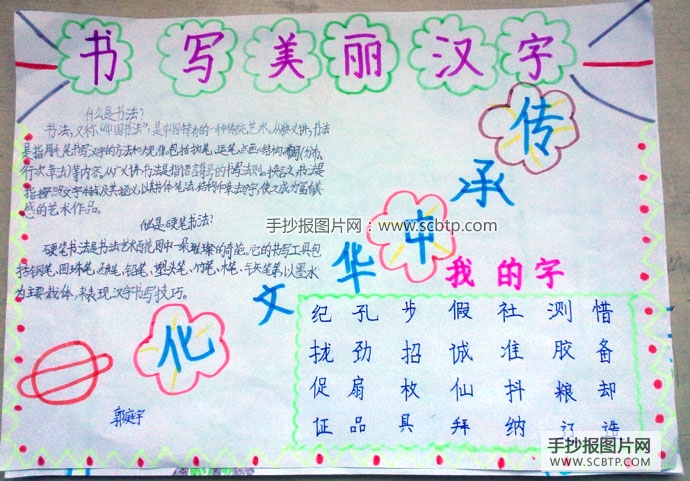 书写美丽汉字
什么是书法?
书法,又称"中国书法",是中国特有的一种传统艺术。从狭义讲,书法
是指用毛笔书写汉字的方法和规律。包括执笔、运笔、点画、结构、布局(分布、
行次、章法)等内容。从广义讲,书法是指语言符号的书写法则。换言之,书法是
指按照文字特点及其涵义,以其书体笔法、结构和章法写字,使之成为富有美
感的艺术作品。
什么是硬笔书法?
硬笔书法是书法艺术百花园中一朵璀璨的奇葩。它的书写工具包
括钢笔、圆珠笔、铅笔、塑头笔、竹笔、木笔、以墨水
为主要载体,来表现汉字书写技巧。
传
承
中
华
文
化
手抄报图片网:www.scbtp.com
我的字
纪 孔 步 假 社 测 惜
拢 劲 招 诚 准 胶 备
促 扇 枚 仙 抖 粮 却
证 品 具 拜 纳
郭庭宇
手抄报图片网
WWW.SCBTP.COM